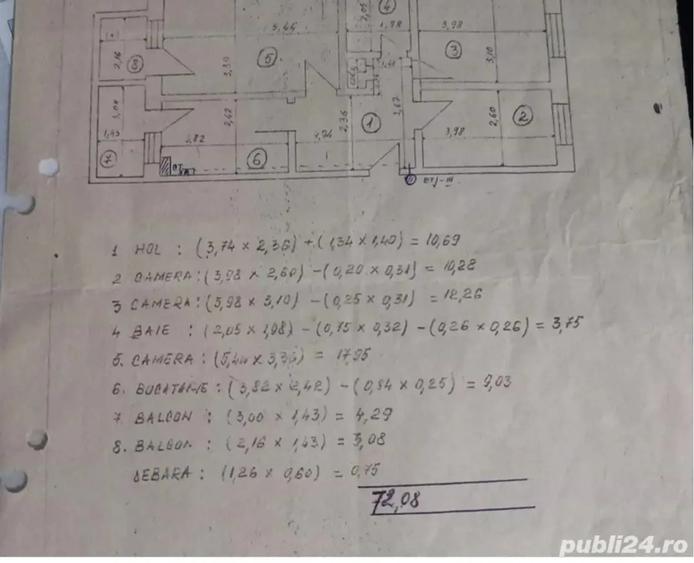 5,45
2,05
1,98
3,98
2,16
8
5
3,30
4
3
3,10
3,00
1,43
7
3,82
2,42
6
3,74
2,36
1
3,67
3,98
2,60
2
1 HOL : (3,74 x 2,36) + (1,34 x 1,40) = 10,69
2 CAMERA : (3,98 x 2,60) - (0,20 x 0,31) = 10,28
3 CAMERA : (3,98 x 3,10) - (0,25 x 0,31) = 12,26
4 BAIE : (2,05 x 1,98) - (0,75 x 0,32) - (0,26 x 0,26) = 3,75
5. CAMERA : (5,44 x 3,30) = 17,95
6. BUCATARIE : (3,82 x 2,42) - (0,84 x 0,25) = 9,03
7 BALCON : (3,00 x 1,43) = 4,29
8. BALCON : (2,16 x 1,43) = 3,08
DEBARA : (1,26 x 0,60) = 0,75
72,08
publi24.ro